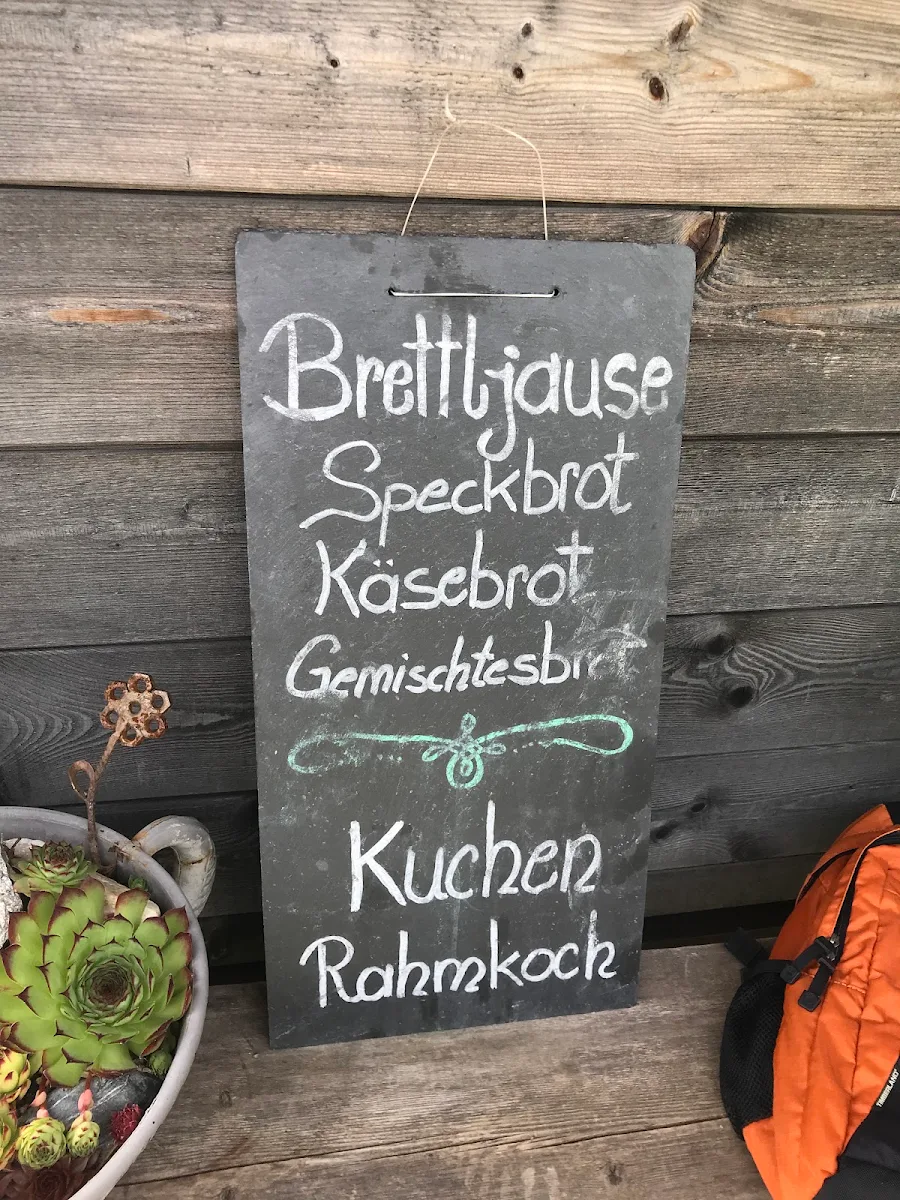 Brettljause
Speckbrot
Käsebrot
Gemischtesbrot
Kuchen
Rahmkoch
TIMBERLAND